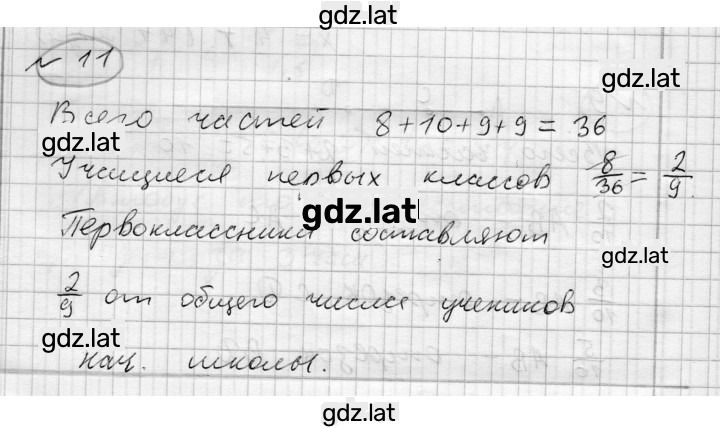 gdz.lat
№ 11
gdz.lat
Всего частей 8+10+9+9=36
gdz.lat
Учащиеся первых классов 8/36 = 2/9.
gdz.lat
Первоклассники составляют
2/9 от общего числа учеников
gdz.lat
gdz.lat
нач. школы.
gdz.lat